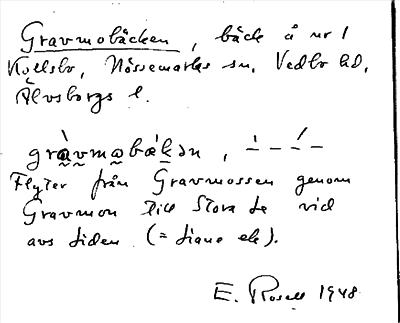 Gravmobäcken, bäck å nr 1
Kyllsbo, Nössemarks sn, Vedbo hd,
Älvsborgs l.
gràvmobækən, –́ – –̸ –
Flyter från Gravmossen genom
Gravmon till Stora Le vid
avs sidan (= Liane elr).
E. Rosell 1948